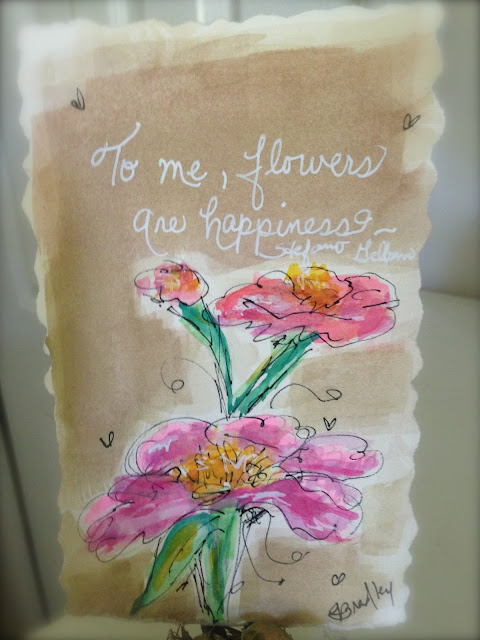 To me, flowers
are happiness ~
Stefano
Bradley